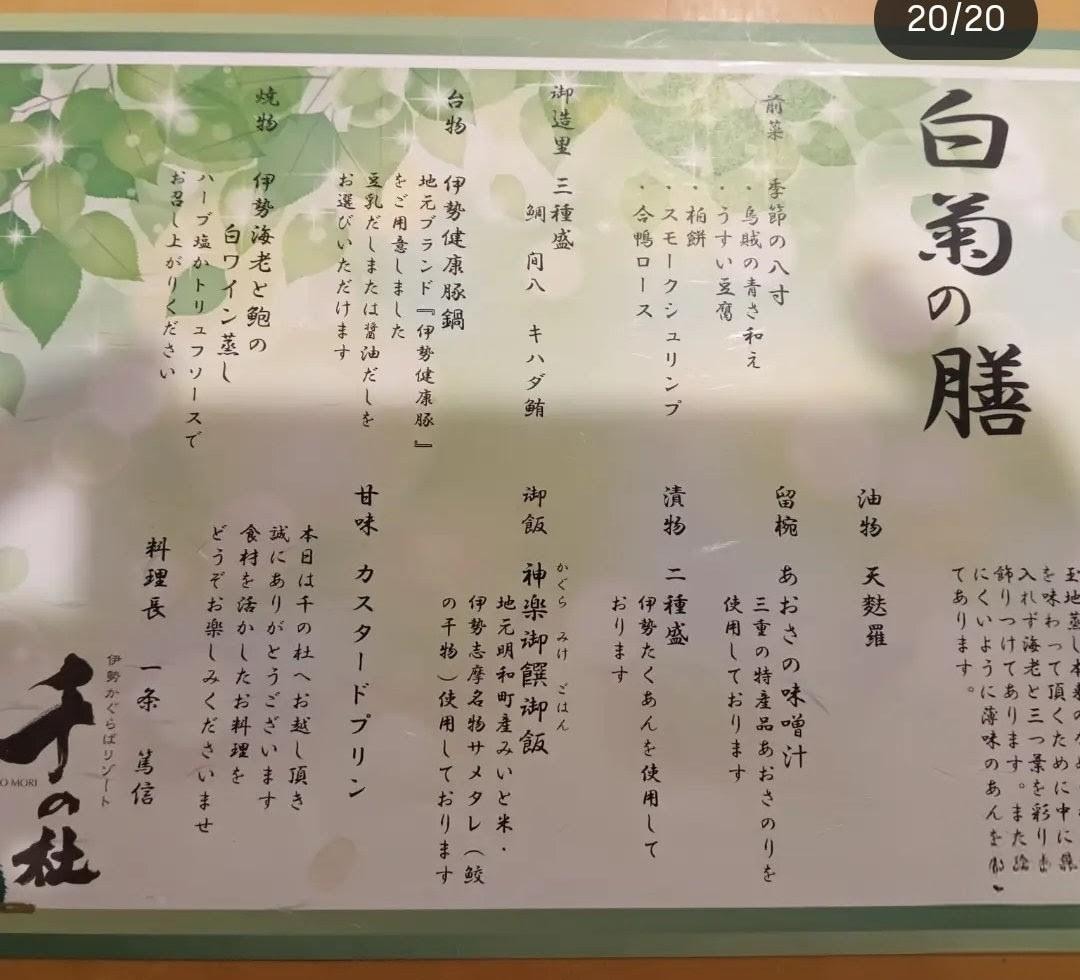 20/20
白菊の膳
前菜 季節の八寸
・烏賊の青さ和え
・うすい豆腐
・柏餅
・スモークシュリンプ
・合鴨ロース
御造里 三種盛
鯛 間八 キハダ鮪
台物 伊勢健康豚鍋
地元ブランド『伊勢健康豚』
をご用意しました
豆乳だしまたは醤油だしを
お選びいただけます
焼物 伊勢海老と鮑の
白ワイン蒸し
ハーブ塩かトリュフソースで
お召し上がりください
を味わって頂くために中に
入れず海老と三つ葉を彩り
飾りつけてあります。また
にくいように薄味のあんを
てあります。
油物 天麩羅
留椀 あおさの味噌汁
三重の特産品あおさのりを
使用しております
漬物 二種盛
伊勢たくあんを使用して
おります
かぐら みけ ごはん
御飯 神楽御饌御飯
地元明和町産みいと米・
伊勢志摩名物サメタレ(鮫
の干物)使用しております
甘味 カスタードプリン
本日は千の杜へお越し頂き
誠にありがとうございます
食材を活かしたお料理を
どうぞお楽しみくださいませ
料理長 一条 篤信
伊勢かぐらばリゾート
千の杜
O MORI